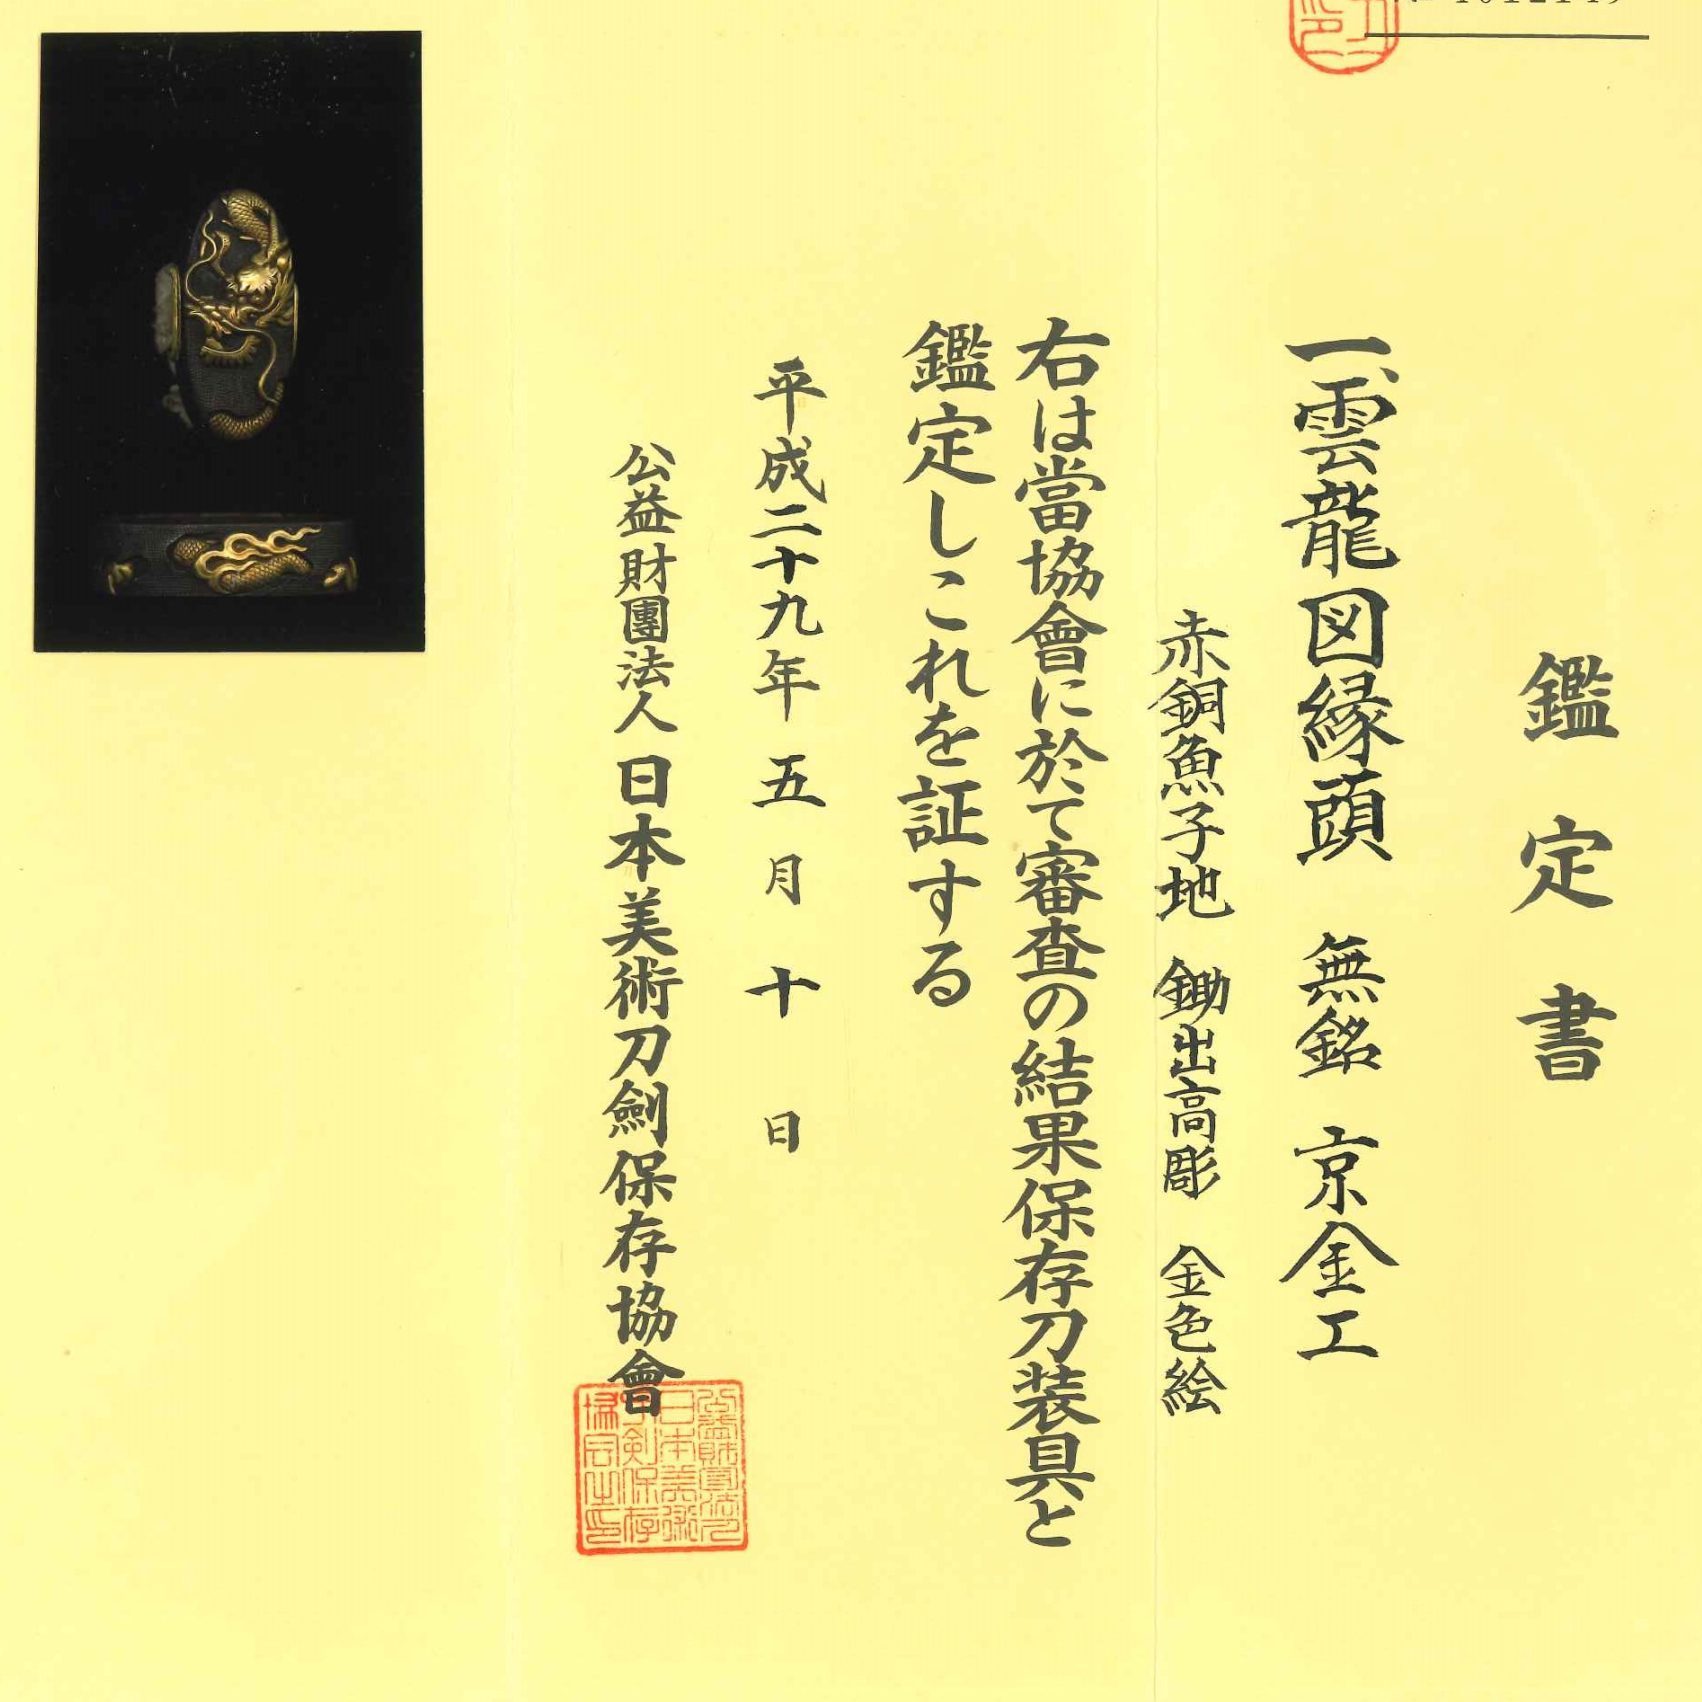 鑑定書
一、雲龍図縁頭 無銘 京金工
赤銅魚子地 鋤出高彫 金色絵
右は當協會に於て審査の結果保存刀装具と
鑑定しこれを証する
平成二十九年五月十日
公益財團法人 日本美術刀劍保存協會